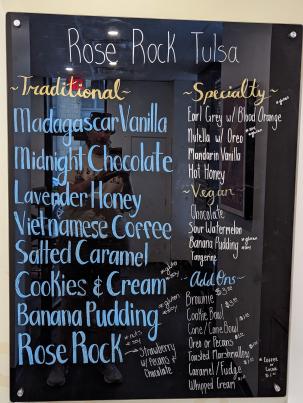 Rose Rock Tulsa
Traditional
Madagascar Vanilla
Midnight Chocolate
Lavender Honey
Vietnamese Coffee
Salted Caramel
Cookies & Cream
Banana Pudding
Rose Rock
Strawberry
w/ Pecans &
Chocolate
Specialty
Earl Grey w/ Blood Orange
Nutella w/ Oreo
Mandarin Vanilla
Hot Honey
Vegan
Chocolate
Sour Watermelon
Banana Pudding
Tangerine
Add Ons
Brownie
Cookie Bowl
Cone/Cone Bowl
Oreo or Pecans
Toasted Marshmallow
Caramel/Fudge
Whipped Cream